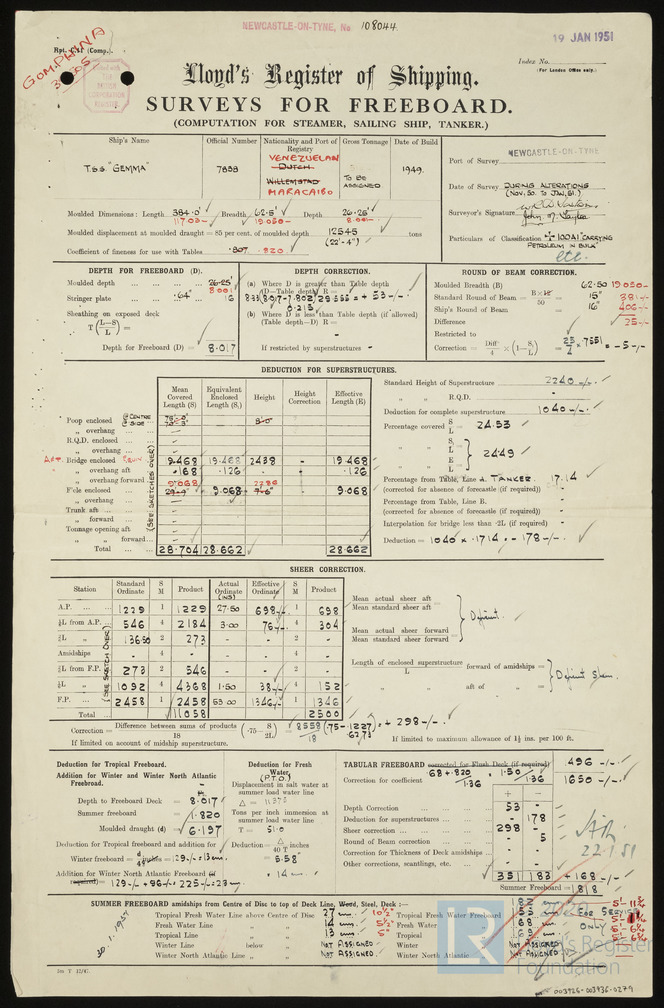 NEWCASTLE-ON-TYNE, No 108044.
19 JAN 1951
Rpt. C.11 (Comp.).
GOMPHINA
Index No.
(For London Office only.)
Lloyd's Register of Shipping.
SURVEYS FOR FREEBOARD.
(COMPUTATION FOR STEAMER, SAILING SHIP, TANKER.)
Ship's Name
Official Number
Nationality and Port of Registry
Gross Tonnage
Date of Build
T.S.S. "GEMMA"
7838
VENEZUELAN
DUTCH
WILLEMSTAD
MARACAIBO
TO BE ASSIGNED
1949.
Port of Survey NEWCASTLE-ON-TYNE
Date of Survey DURING ALTERATIONS
(NOV. 50. TO JAN. 51.)
Surveyor's Signature
Particulars of Classification +100A1 "CARRYING
PETROLEUM IN BULK"
etc.
Moulded Dimensions: Length 384.0' Breadth 62.5' Depth 26.25'
19.050 8.001
Moulded displacement at moulded draught = 85 per cent. of moulded depth 12545 tons
(22'-4")
Coefficient of fineness for use with Tables .807 .820
DEPTH FOR FREEBOARD (D).
Moulded depth 26.25'
8.001
Stringer plate .64" 16
Sheathing on exposed deck
T(L-S/L) =
Depth for Freeboard (D) = 8.017
DEPTH CORRECTION.
(a) Where D is greater than Table depth
(D—Table depth) R =
+ 53
0.215
(b) Where D is less than Table depth (if allowed)
(Table depth—D) R =
If restricted by superstructures -
ROUND OF BEAM CORRECTION.
Moulded Breadth (B) 62.50 19050
Standard Round of Beam = B×12/50 = 15" 381
Ship's Round of Beam = 16" 406
Difference 25
Restricted to
Correction = Diff/4 × (1-S/L) = 25/4 × .7551 = -5
DEDUCTION FOR SUPERSTRUCTURES.
Mean Covered Length (S)
Equivalent Enclosed Length (S₁)
Height
Height Correction
Effective Length (E)
Poop enclosed @ CENTRE SIDE 8'-0"
„ overhang
R.Q.D. enclosed
„ overhang
Bridge enclosed 19.468 19.468 2438 - 19.468
„ overhang aft .168 .126 .126
„ overhang forward
F'cle enclosed 9.068 29'-9" 9.068 2286 7'-6" 9.068
„ overhang
Trunk aft
„ forward
Tonnage opening aft
„ „ forward
Total 28.704 28.662 28.662
(SEE SKETCHES OVER)
Standard Height of Superstructure 2240
„ „ R.Q.D. -
Deduction for complete superstructure 1040
Percentage covered S/L = 24.53
„ „ S₁/L =
„ „ E/L = 24.49
Percentage from Table, Line A. TANKER. 17.14
(corrected for absence of forecastle (if required)) -
Percentage from Table, Line B. -
(corrected for absence of forecastle (if required)) -
Interpolation for bridge less than ·2L (if required) -
Deduction = 1040 × .1714 = - 178
SHEER CORRECTION.
Station
Standard Ordinate
S M
Product
Actual Ordinate (INS)
Effective Ordinate
S M
Product
A.P. 1229 1 1229 27.50 698 1 698
⅙L from A.P. 546 4 2184 3.00 76 4 304
⅓L „ 136.50 2 273 - - 2 -
Amidships - 4 - - - 4 -
⅓L from F.P. 273 2 546 - - 2 -
⅙L „ 1092 4 4368 1.50 38 4 152
F.P. 2458 1 2458 53.00 1346 1 1346
Total 11058 2500
(SEE SKETCH OVER)
Mean actual sheer aft
Mean standard sheer aft = Deficient.
Mean actual sheer forward
Mean standard sheer forward =
Length of enclosed superstructure
L forward of amidships =
„ „ aft of „ =
Deficient Sheer.
Correction = Difference between sums of products
18 (·75— S/2L) = 8558/18 (.75-.1227) = + 298
If limited on account of midship superstructure.
If limited to maximum allowance of 1½ ins. per 100 ft.
Deduction for Tropical Freeboard.
Addition for Winter and Winter North Atlantic Freeboard.
Depth to Freeboard Deck = 8.017
Summer freeboard = 1.820
Moulded draught (d) = 6.197
Deduction for Tropical freeboard and addition for
Winter freeboard = 129 = 13 cm.
Addition for Winter North Atlantic Freeboard (if required) =
129 + 96 = 225 = 23 cm.
Deduction for Fresh Water. (P.T.O.)
Displacement in salt water at summer load water line
△ =
Tons per inch immersion at summer load water line
T = 51.0
Deduction = △/40 T inches
= 5.58"
= 14 cm.
TABULAR FREEBOARD corrected for Flush Deck (if required) 1496
Correction for coefficient .68+.820/1.36 = 1.50/1.36 1650
+ -
Depth Correction 53 -
Deduction for superstructures - 178
Sheer correction 298 -
Round of Beam correction - 5
Correction for Thickness of Deck amidships - -
Other corrections, scantlings, etc. - -
351 183 + 168
Summer Freeboard = 1818
22.1.51
SUMMER FREEBOARD amidships from Centre of Disc to top of Deck Line, Wood, Steel, Deck:—
Tropical Fresh Water Line above Centre of Disc 27 cms. 10½"
Fresh Water Line „ 14 cms. 5½"
Tropical Line „ 13 cms. 5"
Winter Line below „ NOT ASSIGNED
Winter North Atlantic Line „ „ NOT ASSIGNED
Tropical Fresh Water Freeboard
Fresh Water „
Tropical „
Winter „ NOT ASSIGNED
Winter North Atlantic „ NOT ASSIGNED
FOR SERVICE
ONLY
5'-11¾"
30.1.1951
2m T 12/47.
LR
Lloyd's Register
Foundation
003926-003936-0279